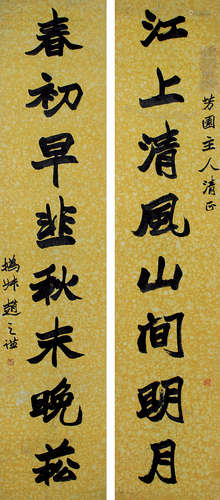 芳園主人清正
江上清風山間明月
春初早韭秋末晚菘
撝叔趙之謙